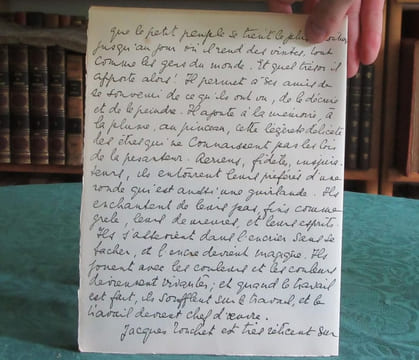 que le petit peuple se tient le plus
jusqu'au jour où il rend des visites, tout
comme les gens du monde. Et quel trésor il
apporte alors! Il permet à ses amis de
se souvenir de ce qu'ils ont vu, de le décrire
et de le peindre. Il ajoute à la mémoire, à
la plume, au pinceau, cette légèreté délicate
des êtres qui ne connaissent pas les lois
de la pesanteur. Aériens, fidèles,
ils entourent leurs préférés d'une
ronde qui est aussi une guirlande. Ils
enchantent de leurs pas, fins comme
grêle, leurs demeures, et leurs esprits.
Ils s'abreuvent dans l'encrier sans se
tacher, et l'encre devient magique. Ils
jouent avec les couleurs et les couleurs
deviennent vivantes; et quand le travail
est fait, ils soufflent sur le travail, et le
travail devient chef d'œuvre.
Jacques est très réticent sur